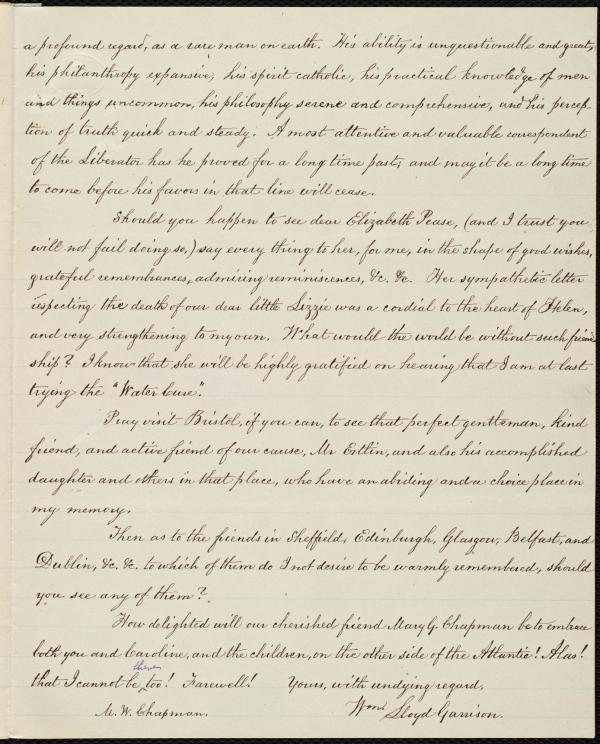 a profound regard, as a rare man on earth. His ability is unquestionable and great,
his philanthropy expansive, his spirit catholic, his practical knowledge of men
and things uncommon, his philosophy serene and comprehensive, and his percep-
tion of truth quick and steady. A most attentive and valuable correspondent
of the Liberator has he proved for a long time past; and may it be a long time
to come before his favors in that line will cease.
Should you happen to see dear Elizabeth Pease, (and I trust you
will not fail doing so,) say every thing to her, for me, in the shape of good wishes,
grateful remembrances, admiring reminiscences, &c. &c. Her sympathetic letter
respecting the death of our dear little Lizzie was a cordial to the heart of Helen,
and very strengthening to my own. What would the world be without such friend
ship? I know that she will be highly gratified on hearing that I am at last
trying the "Water Cure".
Pray visit Bristol, if you can, to see that perfect gentleman, kind
friend, and active friend of our cause, Mr Estlin, and also his accomplished
daughter and others in that place, who have an abiding and a choice place in
my memory.
Then as to the friends in Sheffield, Edinburgh, Glasgow, Belfast, and
Dublin, &c. &c. to which of them do I not desire to be warmly remembered, should
you see any of them?
How delighted will our cherished friend Mary G. Chapman be to embrace
both you and Caroline, and the children, on the other side of the Atlantic! Alas!
that I cannot be there too! Farewell! Yours, with undying regard,
M. W. Chapman. Wm. Lloyd Garrison.